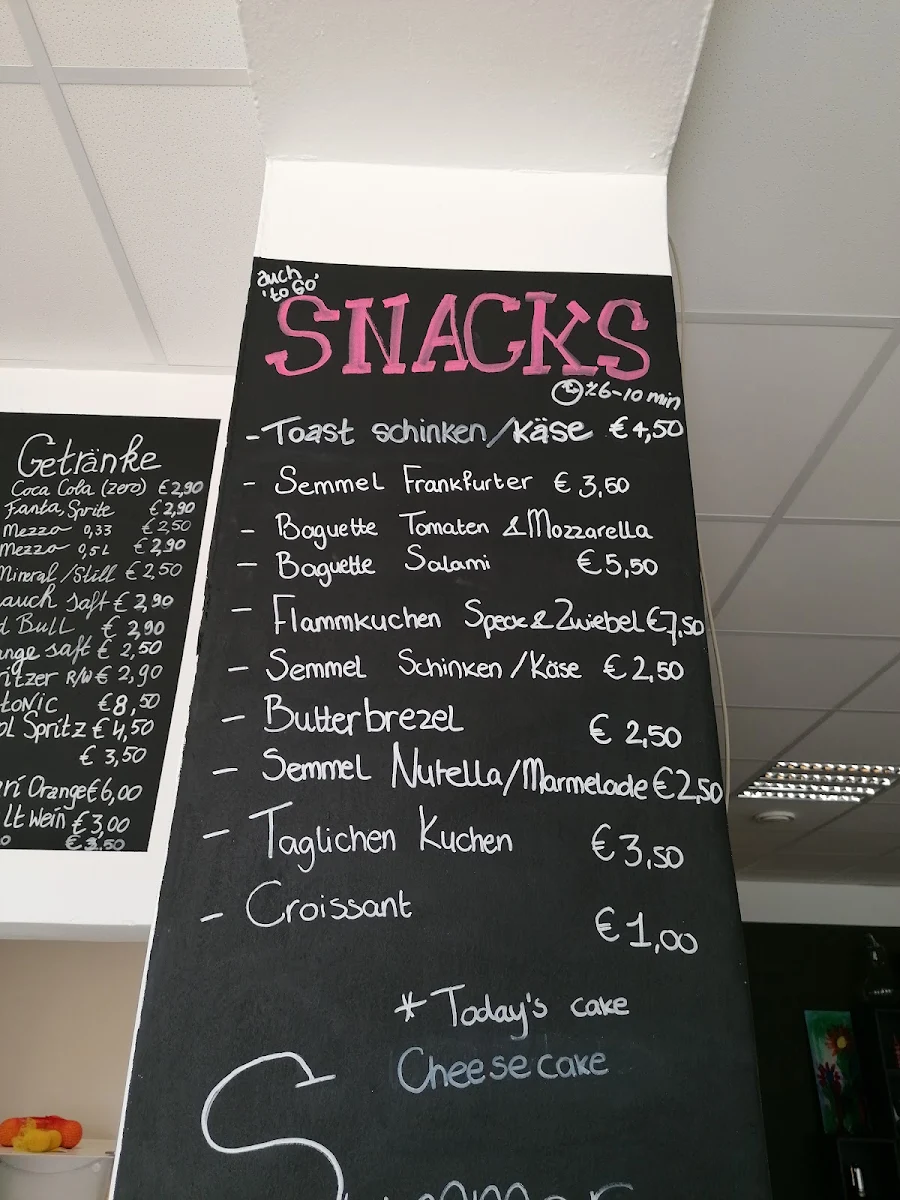 Getränke
Coca Cola (zero) €2,90
Fanta, Sprite €2,90
Mezzo 0,33 €2,50
Mezzo 0,5L €2,90
Mineral/Still €2,50
auch Saft €2,90
d Bull € 2,90
nge saft € 2,50
ritzer R/W€ 2,90
tonic €8,50
ol Spritz €4,50
€ 3,50
eri Orange€6,00
lt wein €3,00
€3,50
auch
'to Go'
SNACKS
±6-10 min
-Toast schinken/käse €4,50
- Semmel Frankfurter €3,50
- Baguette Tomaten &Mozzarella
- Baguette Salami €5,50
- Flammkuchen Speck&Zwiebel€7,50
- Semmel Schinken/Käse €2,50
- Butterbrezel € 2,50
- Semmel Nutella/Marmelade€2,50
- Taglichen Kuchen €3,50
- Croissant €1,00
*Today's cake
Cheesecake